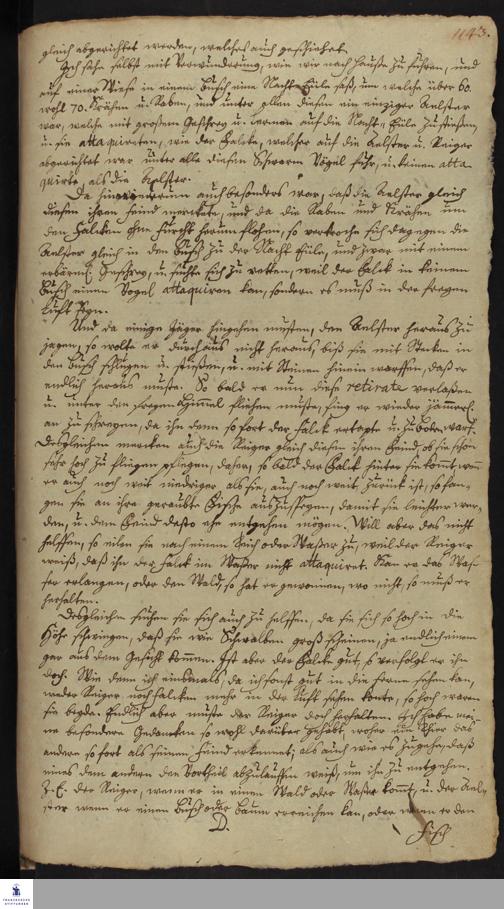 1143.
gleich abgerichtet werden, welches auch geschiehet.
Ich sahe selbst mit Verwunderung, wie wir nach Hauße zu fuhren, und
auf einer Wiese in einem Busch eine Nacht-Eule saß, um welche über 60.
wohl 70. Krähen u. Raben, und unter allen diesen ein einziger Aelster
war, welche mit großem Geschrey u. Lermen auf die Nacht-Eule zu stießen,
u. sie attaquireten, wie der Falcke, welcher auf die Aelster u. Reiger
abgerichtet war, unter alle diesen Schwarm Vögel fuhr, u. keinen atta-
quirte, als die Aelster.
Da hingegen auch besonders war, daß die Aelster gleich
diesen ihren Feind merckete, und da die Raben und Krähen um
den Falcken ohne Furcht herum flohen, so verkroche sich dagegen die
Aelster gleich in den Busch zu der Nacht-Eule, und zwar mit einem
erbärml. Geschrey, u. suchte sich zu retten, weil der Falck in keinem
Busch einen Vogel attaquiren kan, sondern es muß in der freyen
Lufft seyn.
Und da einige Jäger hingehen musten, den Aelster heraus zu
jagen, so wolte er durchaus nicht heraus, biß sie mit Stecken in
den Busch schlugen u. stießen, u. mit Steinen hinein warffen, daß er
endlich heraus muste. So bald er nun diese retirate verlaßen
u. unter den freyen Himmel fliehen muste, fing er wieder jämmerl.
an zu schreyen, da ihn denn so fort der Falck ertapte u. zu Boden warf.
Desgleichen mercken auch die Reiger gleich diesen ihren Feind, ob sie schon
sehr hoch zu fliegen pflegen, daher, so bald der Falck hinter sie kommt, wenn
er auch noch weit niedriger als sie, auch noch weit zurück ist, so fan-
gen sie an ihre geraubte Fische auszuspeyen, damit sie leichter wer-
den, u. dem Feind desto ehe entgehen mögen. Will aber das nicht
helffen, so eilen sie nach einem Teich oder Waßer zu, weil der Reiger
weiß, daß ihn der Falck im Waßer nicht attaquiret. Kan er das Waß-
ser erlangen, oder den Wald, so hat er gewonnen, wo nicht, so muß er
herhalten.
Desgleichen suchen sie sich auch zu helffen, da sie sich so hoch in die
Höhe schwingen, daß sie wie Schwalben groß scheinen, ja endlich einem
gar aus dem Gesicht kommen. Ist aber der Falcke gut, so verfolgt er ihn
doch. Wie denn ich einsmals, da ich sonst gut in die Ferne sehen kan,
weder Reiger noch Falcken mehr in der Lufft sehen konte, so hoch waren
sie beyde. Endlich aber muste der Reiger doch herhalten. Ich habe mei-
ne besondere Gedancken so wohl darüber gehabt, woher ein Thier das
andere so fort als seinen Feind erkennet; als auch wie es zugehe, daß
eines dem andern den Vortheil abzulauffen weiß, um ihn zu entgehen.
Z. E. der Reiger, wenn er in einen Wald oder Waßer kommt, u. der Ael-
ster wenn er einen Busch oder Baum erreichen kan, oder wenn er den
D.